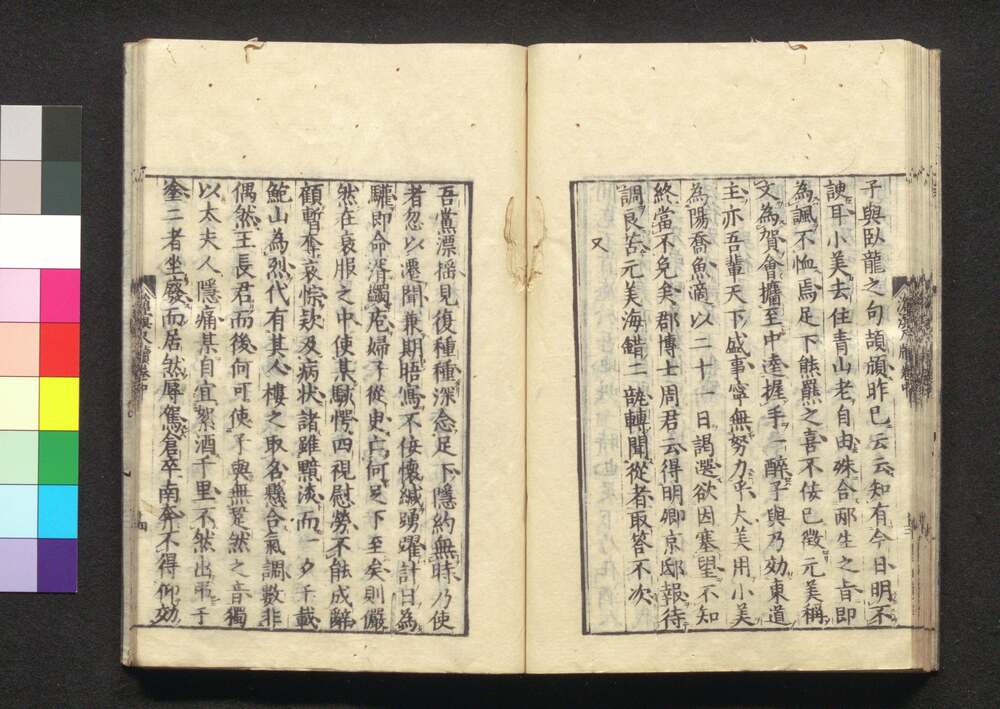 子與臥龍之句頡頏昨已云云知有今日明不
諛耳小美去住青山老自由殊合邴生之旨即
為諷不恤焉足下熊羆之喜不佞已徵元美稱
文為賀會攜至中逵握手一醉子與乃効東道
主亦吾輩天下盛事寧無努力乎大美用小美
為陽喬魚滴以二十一日謁選欲因塞望不知
終當不免矣郡博士周君云得明卿京邸報待
調良苦元美海錯二瓻轉聞從者取答不次
又
吾黨漂搖見復種種深念足下隱約無時乃使
者忽以濔聞兼期晤寓不佞懷緘踴躍計日為
驩即命滑蠲庖婦子從臾亡何足下至矣則儼
然在哀服之中使某駭愕四視慰勞不能成辭
顧暫奪哀悰欵及病狀諸雖黯淡而一夕千載
鮑山為烈代有其人樓之取名懸合氣調數非
偶然王長君而後何可使子與無跫然之音獨
以太夫人隱痛某自宜絮酒千里不然出弔于
塗二者坐廢而居然辱駕倉卒南奔不得仰効